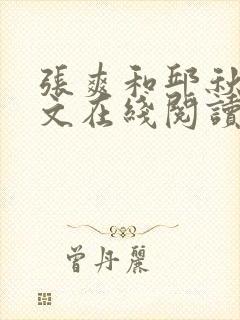 張爽和邱秋
文在綫閱讀
曾丹麗